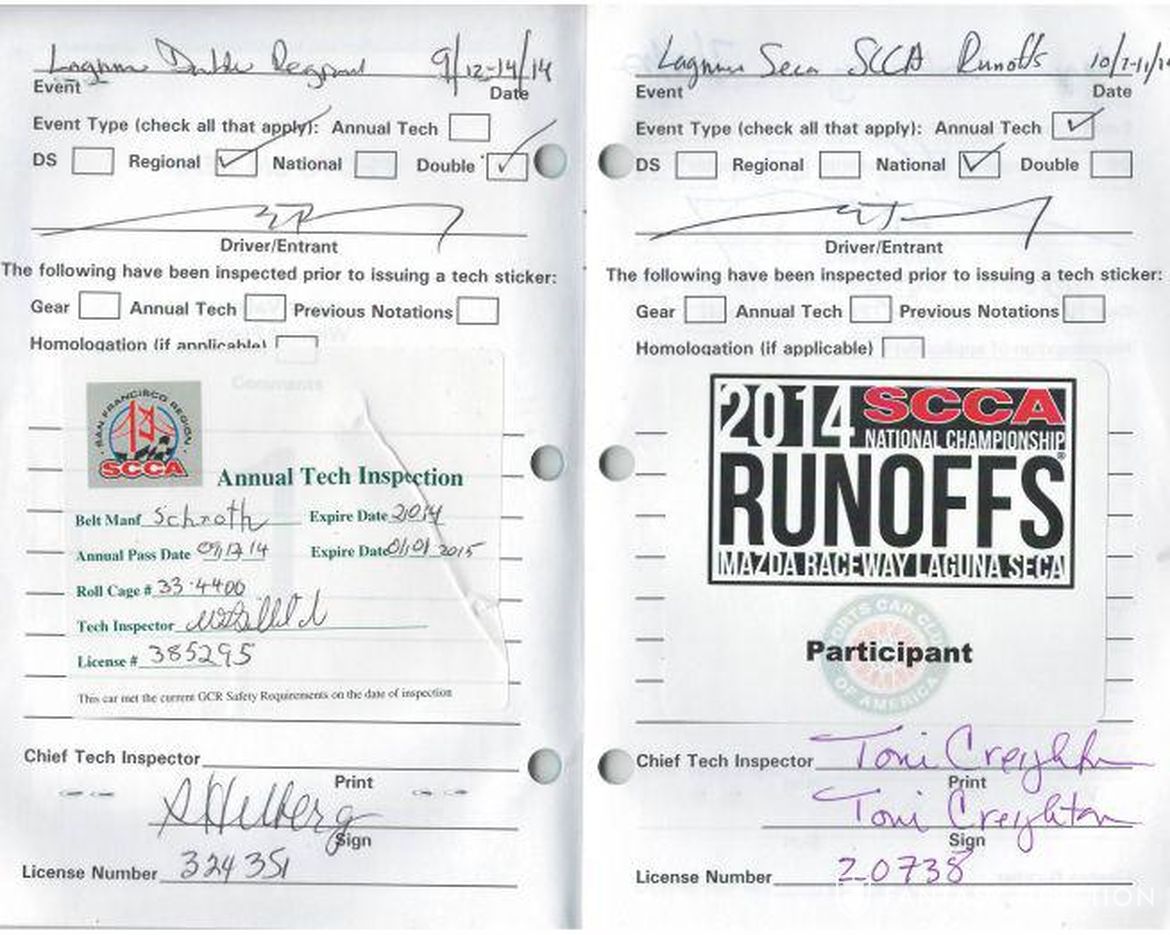 Laguna Double Regional 9/12-14/14
Event Date
Event Type (check all that apply): Annual Tech
DS Regional National Double
Driver/Entrant
The following have been inspected prior to issuing a tech sticker:
Gear Annual Tech Previous Notations
Homologation (if applicable)
Comments
SAN FRANCISCO REGION
SCCA
Annual Tech Inspection
Belt Manf Schroth Expire Date 2014
Annual Pass Date 09/12/14 Expire Date 01/01 2015
Roll Cage # 33-4400
Tech Inspector
License # 385295
This car met the current GCR Safety Requirements on the date of inspection
Chief Tech Inspector
Print
Sign
License Number 324351
Laguna Seca SCCA Runoffs
Event Date
Event Type (check all that apply): Annual Tech
DS Regional National Double
Driver/Entrant
The following have been inspected prior to issuing a tech sticker:
Gear Annual Tech Previous Notations
Homologation (if applicable)
2014 SCCA
NATIONAL CHAMPIONSHIP
RUNOFFS®
MAZDA RACEWAY LAGUNA SECA
SPORTS CAR CLUB
Participant
OF AMERICA
Chief Tech Inspector Toni Creighton
Print
Toni Creighton
Sign
License Number 20738